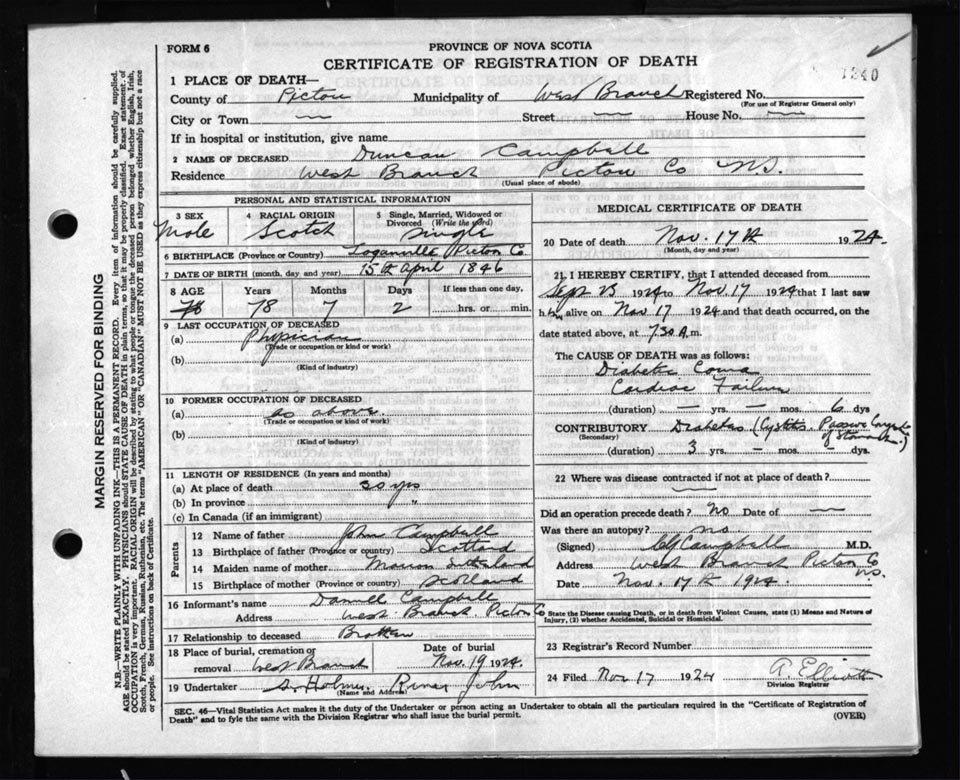 FORM 6
PROVINCE OF NOVA SCOTIA
CERTIFICATE OF REGISTRATION OF DEATH
1240
1 PLACE OF DEATH—
County of Pictou Municipality of West Branch Registered No.
(For use of Registrar General only)
City or Town — Street — House No. —
If in hospital or institution, give name
2 NAME OF DECEASED Duncan Campbell
Residence West Branch Pictou Co N.S.
(Usual place of abode)
PERSONAL AND STATISTICAL INFORMATION
3 SEX 4 RACIAL ORIGIN 5 Single, Married, Widowed or Divorced (Write the word)
Male Scotch Single
6 BIRTHPLACE (Province or Country) Loganville Pictou Co.
7 DATE OF BIRTH (month, day, and year) 15th April 1846
8 AGE Years Months Days If less than one day,
78 78 7 2 hrs. or min.
9 LAST OCCUPATION OF DECEASED
(a) Physician
(Trade or occupation or kind or work)
(b)
(Kind of industry)
10 FORMER OCCUPATION OF DECEASED
(a) as above.
(Trade or occupation or kind of work)
(b)
(Kind of industry)
11 LENGTH OF RESIDENCE (In years and months)
(a) At place of death 30 yrs
(b) In province "
(c) In Canada (if an immigrant)
Parents
12 Name of father John Campbell
13 Birthplace of father (Province or country) Scotland
14 Maiden name of mother Marion Sutherland
15 Birthplace of mother (Province or country) Scotland
16 Informant's name Campbell
Address West Branch Pictou Co
17 Relationship to deceased Brother
18 Place of burial, cremation or removal West Branch
Date of burial Nov. 19 1924.
19 Undertaker Holmes River John
(Name and Address)
MEDICAL CERTIFICATE OF DEATH
20 Date of death Nov. 17th 1924.
(Month, day and year)
21. I HEREBY CERTIFY, that I attended deceased from
Sept 23 1924 to Nov. 17 1924 that I last saw
him alive on Nov 17 1924 and that death occurred, on the
date stated above, at 7.30 A.m.
The CAUSE OF DEATH was as follows:
Diabetic Coma
Cardiac Failure
(duration) — yrs. — mos. 6 dys
CONTRIBUTORY Diabetes (Cystitis. Passive
(Secondary) of Stomach.)
(duration) 3 yrs. — mos. — dys.
22 Where was disease contracted if not at place of death?
—
Did an operation precede death? No Date of —
Was there an autopsy? no.
(Signed) Campbell M.D.
Address West Branch Pictou Co N.S.
Date Nov. 17th 1924.
State the Disease causing Death, or in death from Violent Causes, state (1) Means and Nature of Injury, (2) whether Accidental, Suicidal or Homicidal.
23 Registrar's Record Number
24 Filed Nov 17 1924 A. Elliott
Division Registrar
SEC. 46—Vital Statistics Act makes it the duty of the Undertaker or person acting as Undertaker to obtain all the particulars required in the "Certificate of Registration of
Death" and to fyle the same with the Division Registrar who shall issue the burial permit.
(OVER)
MARGIN RESERVED FOR BINDING
N.B.—WRITE PLAINLY WITH UNFADING INK—THIS IS A PERMANENT RECORD. Every item of information should be carefully supplied.
AGE should be stated EXACTLY. PHYSICIANS should STATE CAUSE OF DEATH in plain terms, so that it may be properly classified. Exact statement of
OCCUPATION is very important. RACIAL ORIGIN will be described by stating to what people or tongue the deceased person belonged whether English, Irish,
Scotch, French, German, Russian, Ruthenian, etc. The terms "AMERICAN" OR "CANADIAN" MUST NOT BE USED as they express citizenship but not a race
or people. See instructions on back of Certificate.